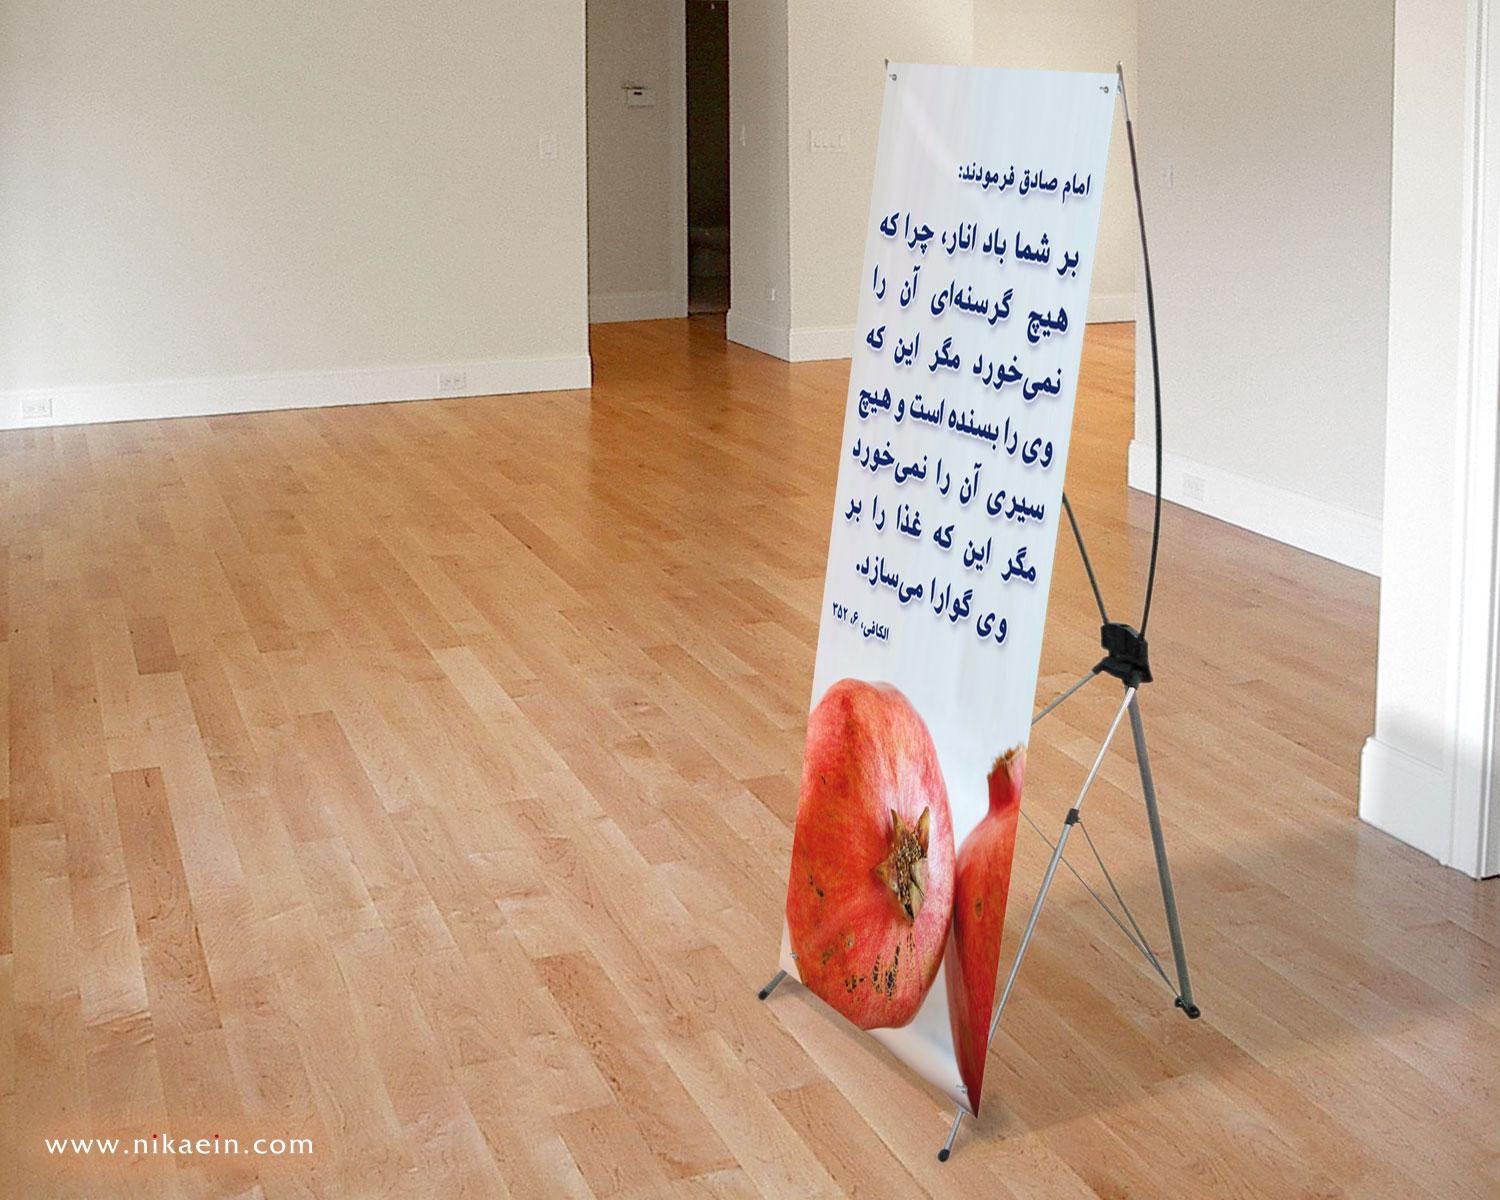 امام صادق فرمودند:
بر شما باد انار، چرا که
هیچ گرسنه‌ای آن را
نمی‌خورد مگر این که
وی را بسنده است و هیچ
سیری آن را نمی‌خورد
مگر این که غذا را بر
وی گوارا می‌سازد.
الکافی، ۶، ۳۵۲
www.nikaein.com